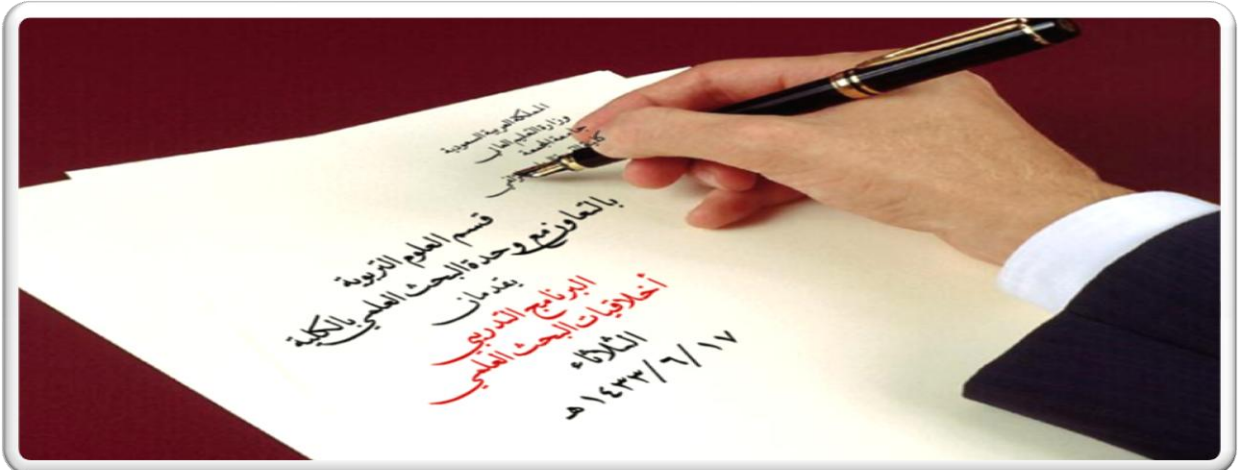 المملكة العربية السعودية
وزارة التعليم العالي
جامعة المجمعة
قسم العلوم التربوية
بالتعاون مع وحدة البحث العلمي بالكلية
يقدمان
البرنامج التدريبي
أخلاقيات البحث العلمي
الثلاثاء
١٤٣٣/٦/١٧هـ